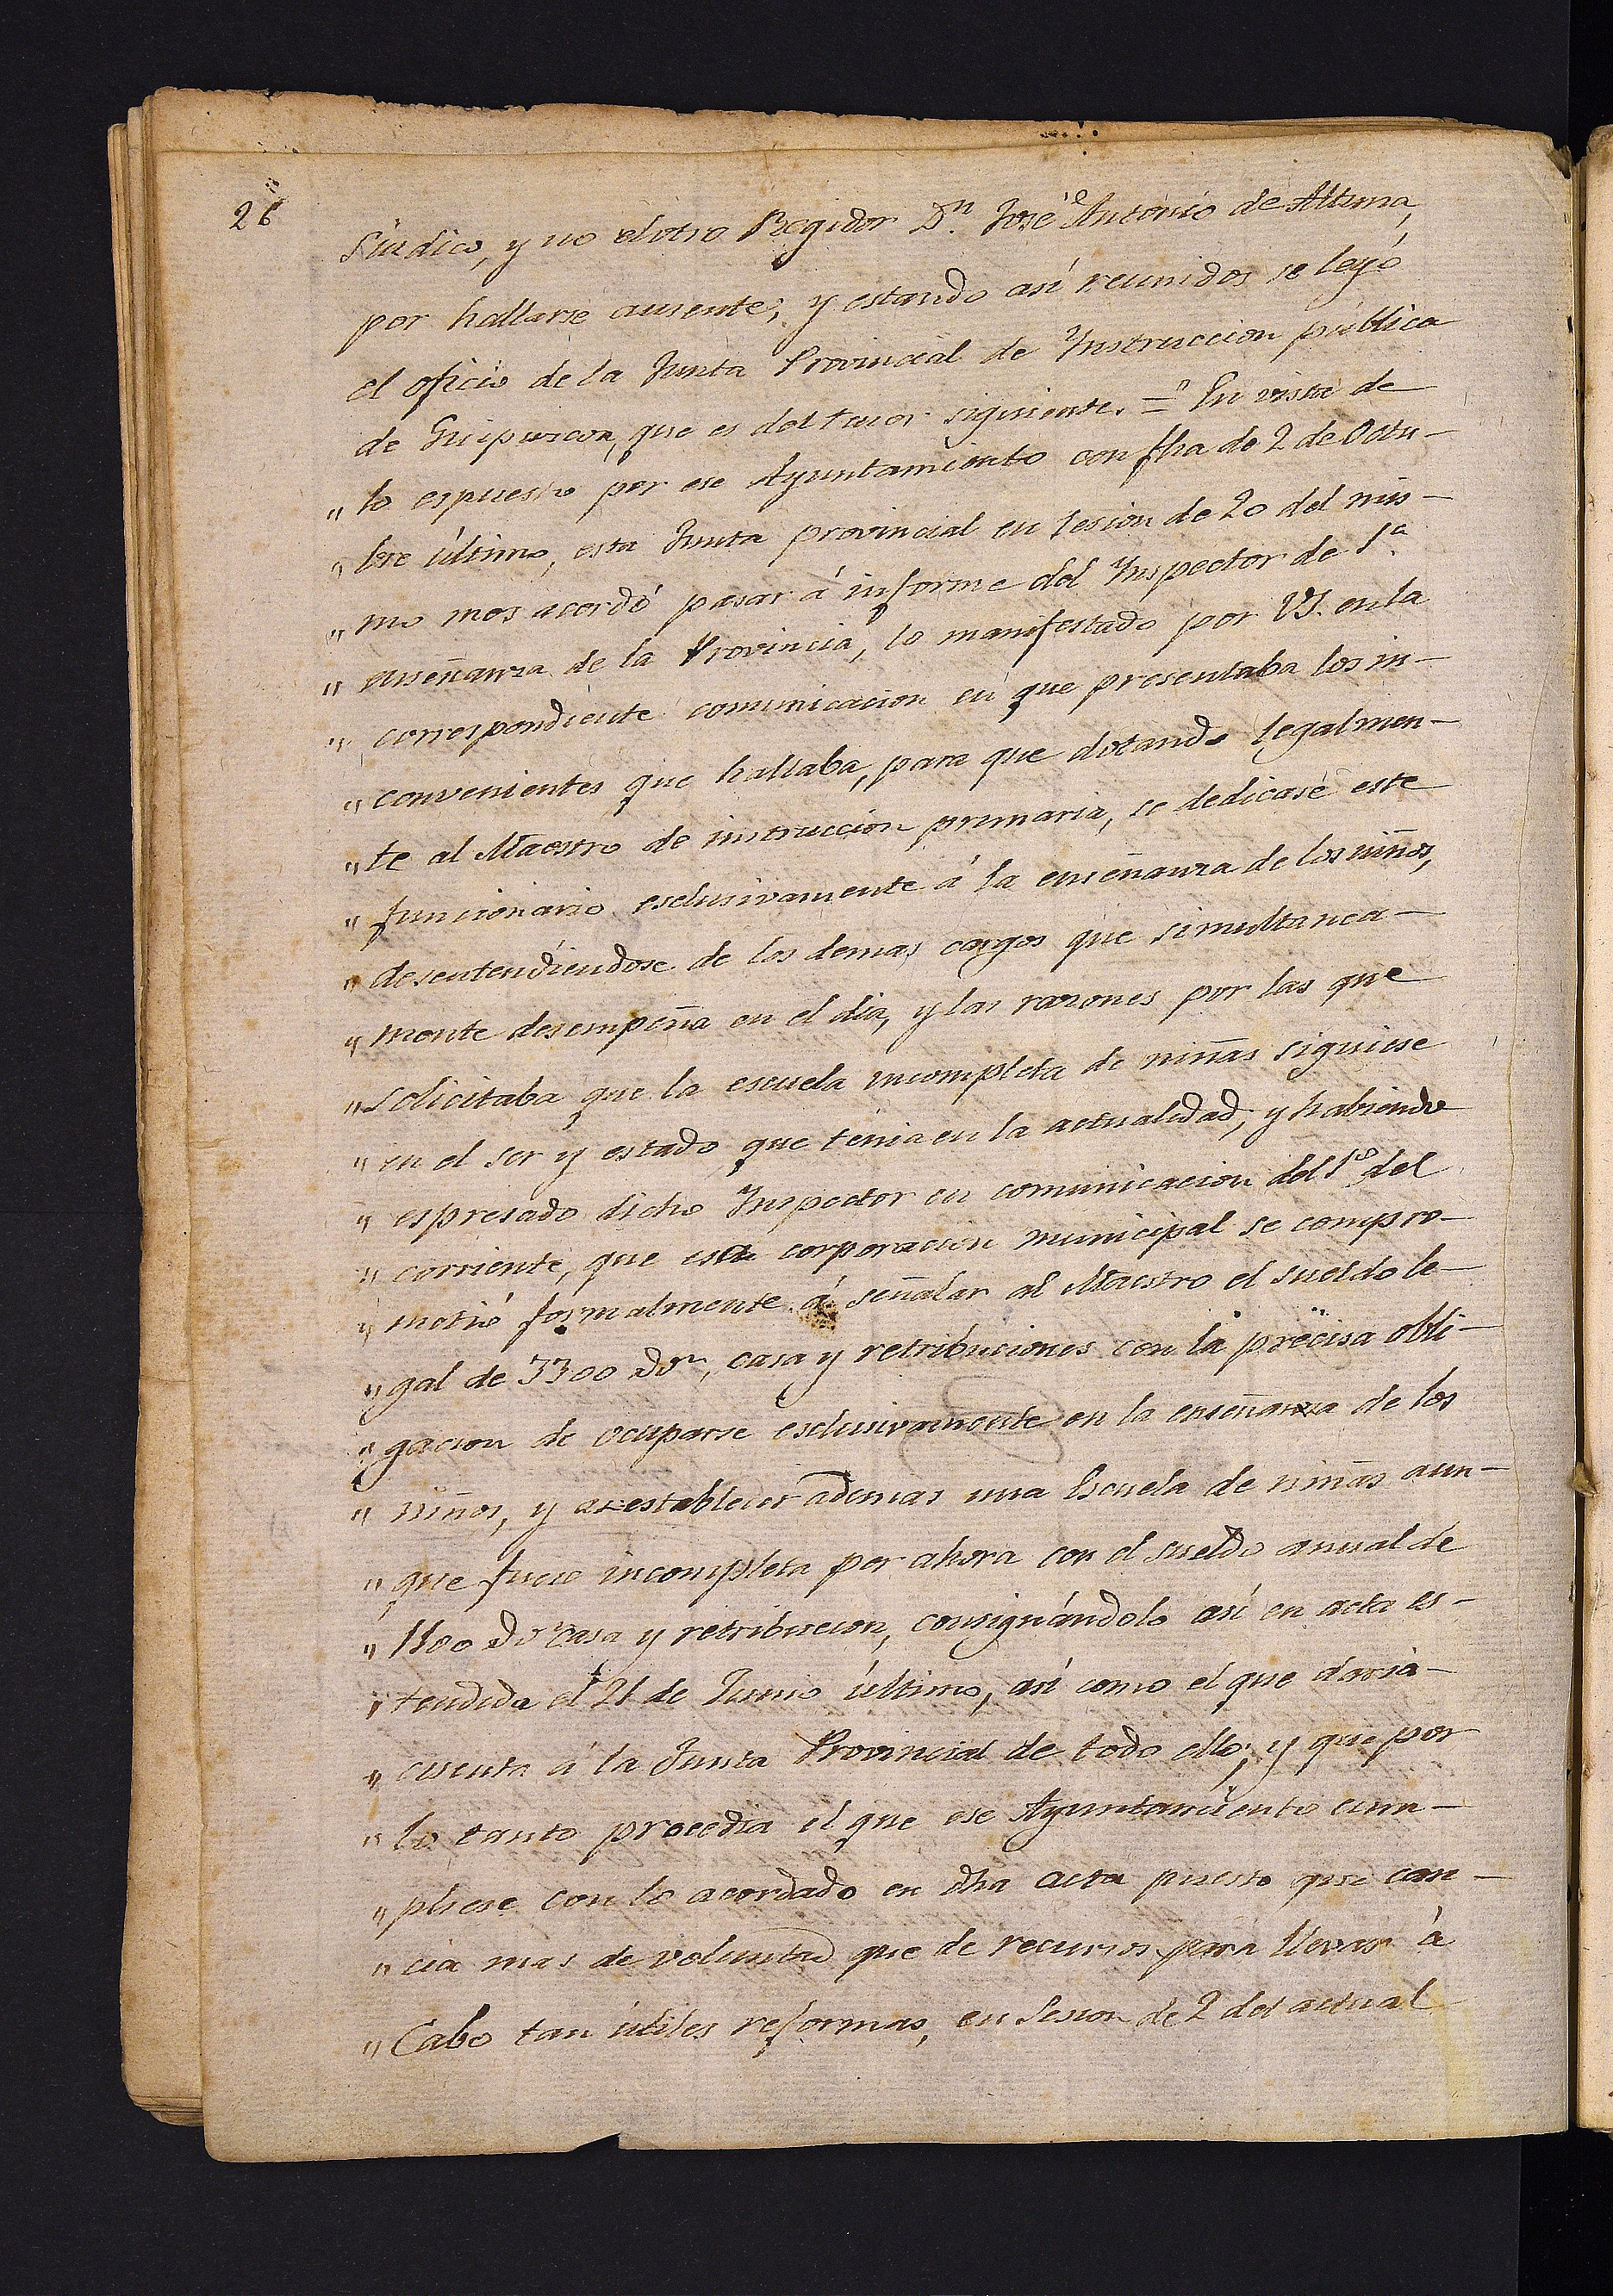 26
Síndico, y no el otro Regidor Dn. José Antonio de Altuna,
por hallarse ausente; y estando así reunidos se leyó
el oficio de la Junta Provincial de Instruccion pública
de Guipuzcoa, que es del tenor siguiente. = En vista de
" lo espuesto por ese Ayuntamiento con fha de 2 de Octu-
" bre último, esta Junta provincial en sesion de 20 del mis-
" mo mes acordó pasar á informe del Inspector de 1a.
" enseñanza de la Provincia, lo manifestado por VS. en la
" correspondiente comunicacion en que presentaba los in-
" convenientes que hallaba, para que dotando legalmen-
" te al Maestro de instruccion primaria, se dedicase este
" funcionario esclusivamente á la enseñanza de los niños,
" desentendiendose de los demas cargos que simultanea-
" mente desempeña en el dia, y las razones por las que
" solicitaba que la escuela incompleta de niñas siguiese
" en el ser y estado que tenia en la actualidad, y habiendo
" espresado dicho Inspector en comunicacion del 1º del
" corriente, que esa corporacion municipal se compro-
" metió formalmente á señalar al Maestro el sueldo le-
" gal de 3300 rs, casa y retribuciones con la precisa obli-
" gacion de ocuparse esclusivamente en la enseñanza de los
" niños, y a establecer ademas una Escuela de niñas aun-
" que fuese incompleta por ahora con el sueldo anual de
" 1100 rs casa y retribucion, consignándolo así en acta es-
" tendida el 21 de Junio último, así como el que daria
" cuenta á la Junta Provincial de todo ello; y que por
" lo tanto procedia el que ese Ayuntamiento cum-
" pliese con lo acordado en dha acta puesto que care-
" cia mas de voluntad que de recursos para llevar à
" Cabo tan útiles reformas, en Sesion de 2 del actual